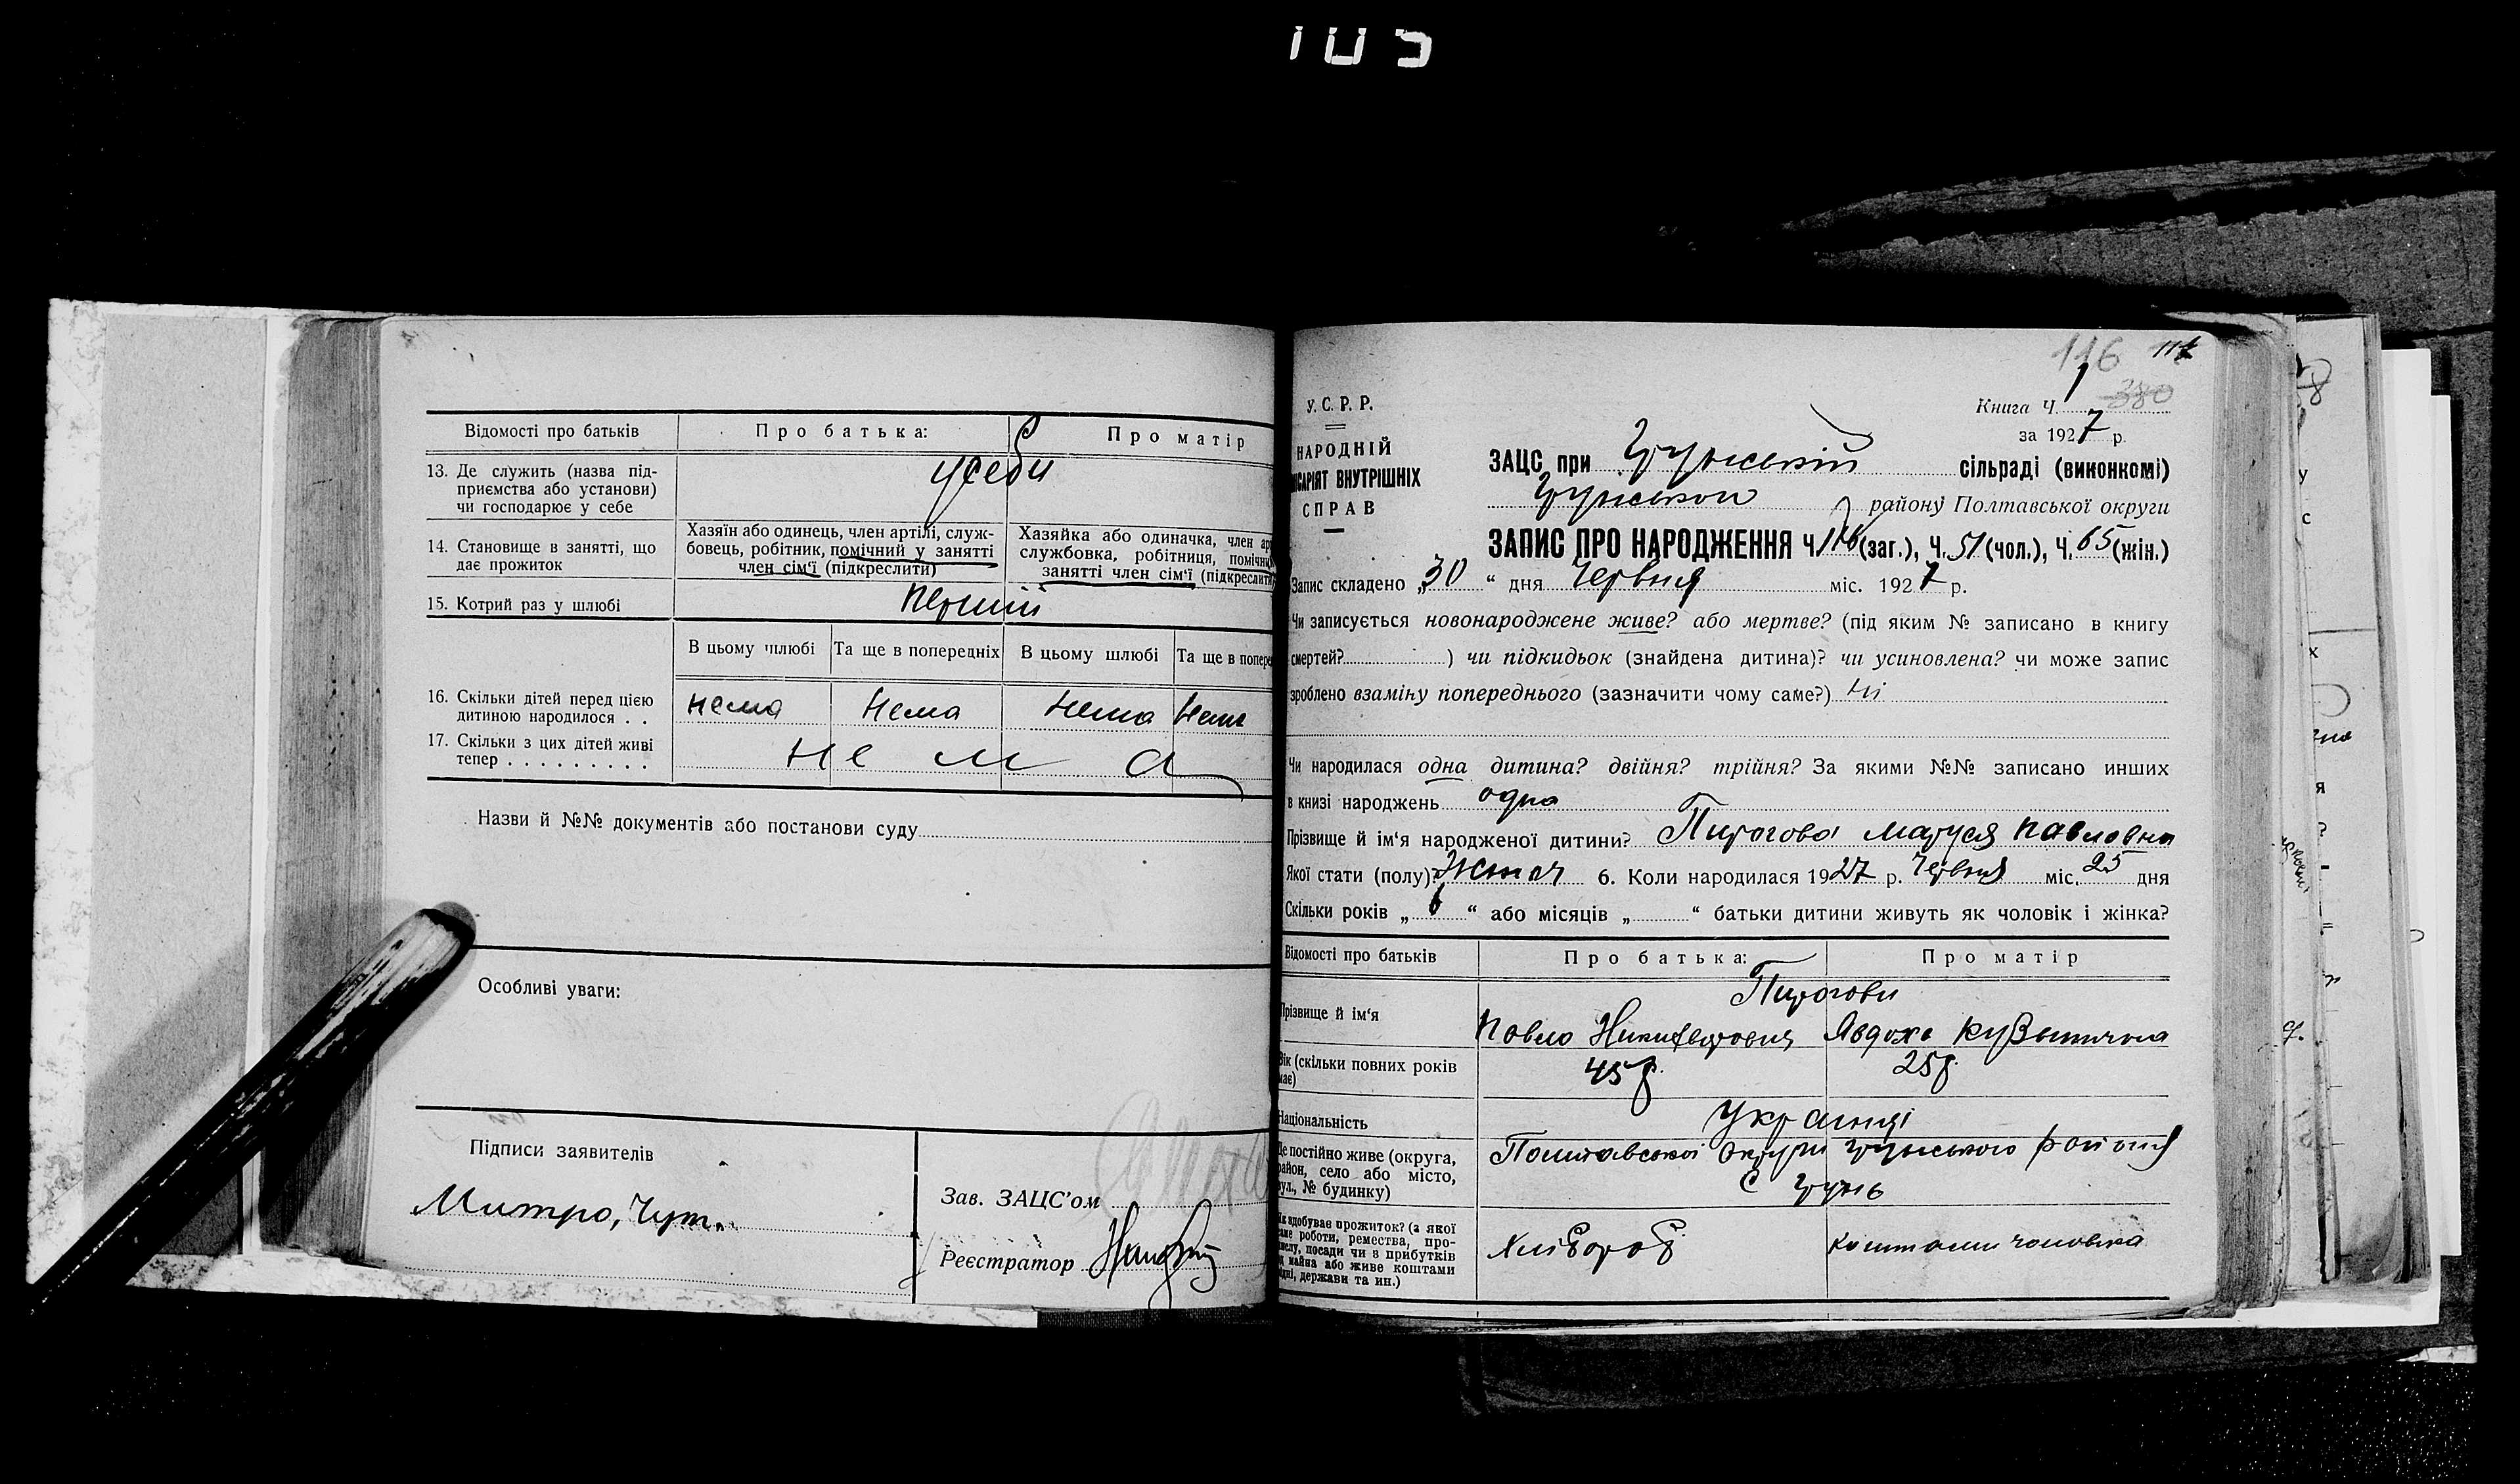 105
Відомості про батьків
Про батька:
Про матір
13. Де служить (назва під-
приємства або установи)
чи господарює у себе
у себи
14. Становище в занятті, що
дає прожиток
Хазяїн або одинець, член артілі, служ-
бовець, робітник, помічний у занятті
член сім'ї (підкреслити)
Хазяйка або одиначка, член
службовка, робітниця,
занятті член сім'ї (підкреслити
15. Котрий раз у шлюбі
перший
В цьому шлюбі
Та ще в попередніх
В цьому шлюбі
Та ще в
16. Скільки дітей перед цією
дитиною народилося . .
нема нема нема нема
17. Скільки з цих дітей живі
тепер . . . . . . . . .
нема
Назви й №№ документів або постанови суду
Особливі уваги:
Підписи заявителів
Митро, Чут.
Зав. ЗАЦС'ом
Реєстратор
116
117
380
У.С.Р.Р.
НАРОДНІЙ
ВНУТРІШНІХ
СПРАВ
Книга Ч. 1
за 1927 р.
ЗАЦС при Грунській сільраді (виконкомі)
Грунського району Полтавської округи
ЗАПИС ПРО НАРОДЖЕННЯ Ч. 116 (заг.), Ч. 51 (чол.), Ч. 65 (жін.)
Запис складено „30“ дня Червня міс. 1927 р.
Чи записується новонароджене живе? або мертве? (під яким № записано в книгу
смертей?) чи підкидьок (знайдена дитина)? чи усиновлена? чи може запис
зроблено взаміну попереднього (зазначити чому саме?) Ні
Чи народилася одна дитина? двійня? трійня? За якими №№ записано инших
в книзі народжень одна
Прізвище й ім'я народженої дитини? Пирогова Маруся Павловна
Якої стати (полу)? 6. Коли народилася 1927 р. Червня міс. 25 дня
Скільки років „6“ або місяців „ “ батьки дитини живуть як чоловік і жінка?
Відомості про батьків
Про батька:
Про матір
Пирогови
Прізвище й ім'я
Павло Никифорович
Явдоха Кузьмична
Вік (скільки повних років
має)
45 р.
25 р.
Національність
Українці
Де постійно живе (округа,
район, село або місто,
вул., № будинку)
Полтавської округи Грунського району
С Грунь
Як здобуває прожиток? (з якої
саме роботи, ремества, про-
мислу, посади чи в прибутків
майна або живе коштами
держави та ин.)
Хлібороб
Коштами чоловіка